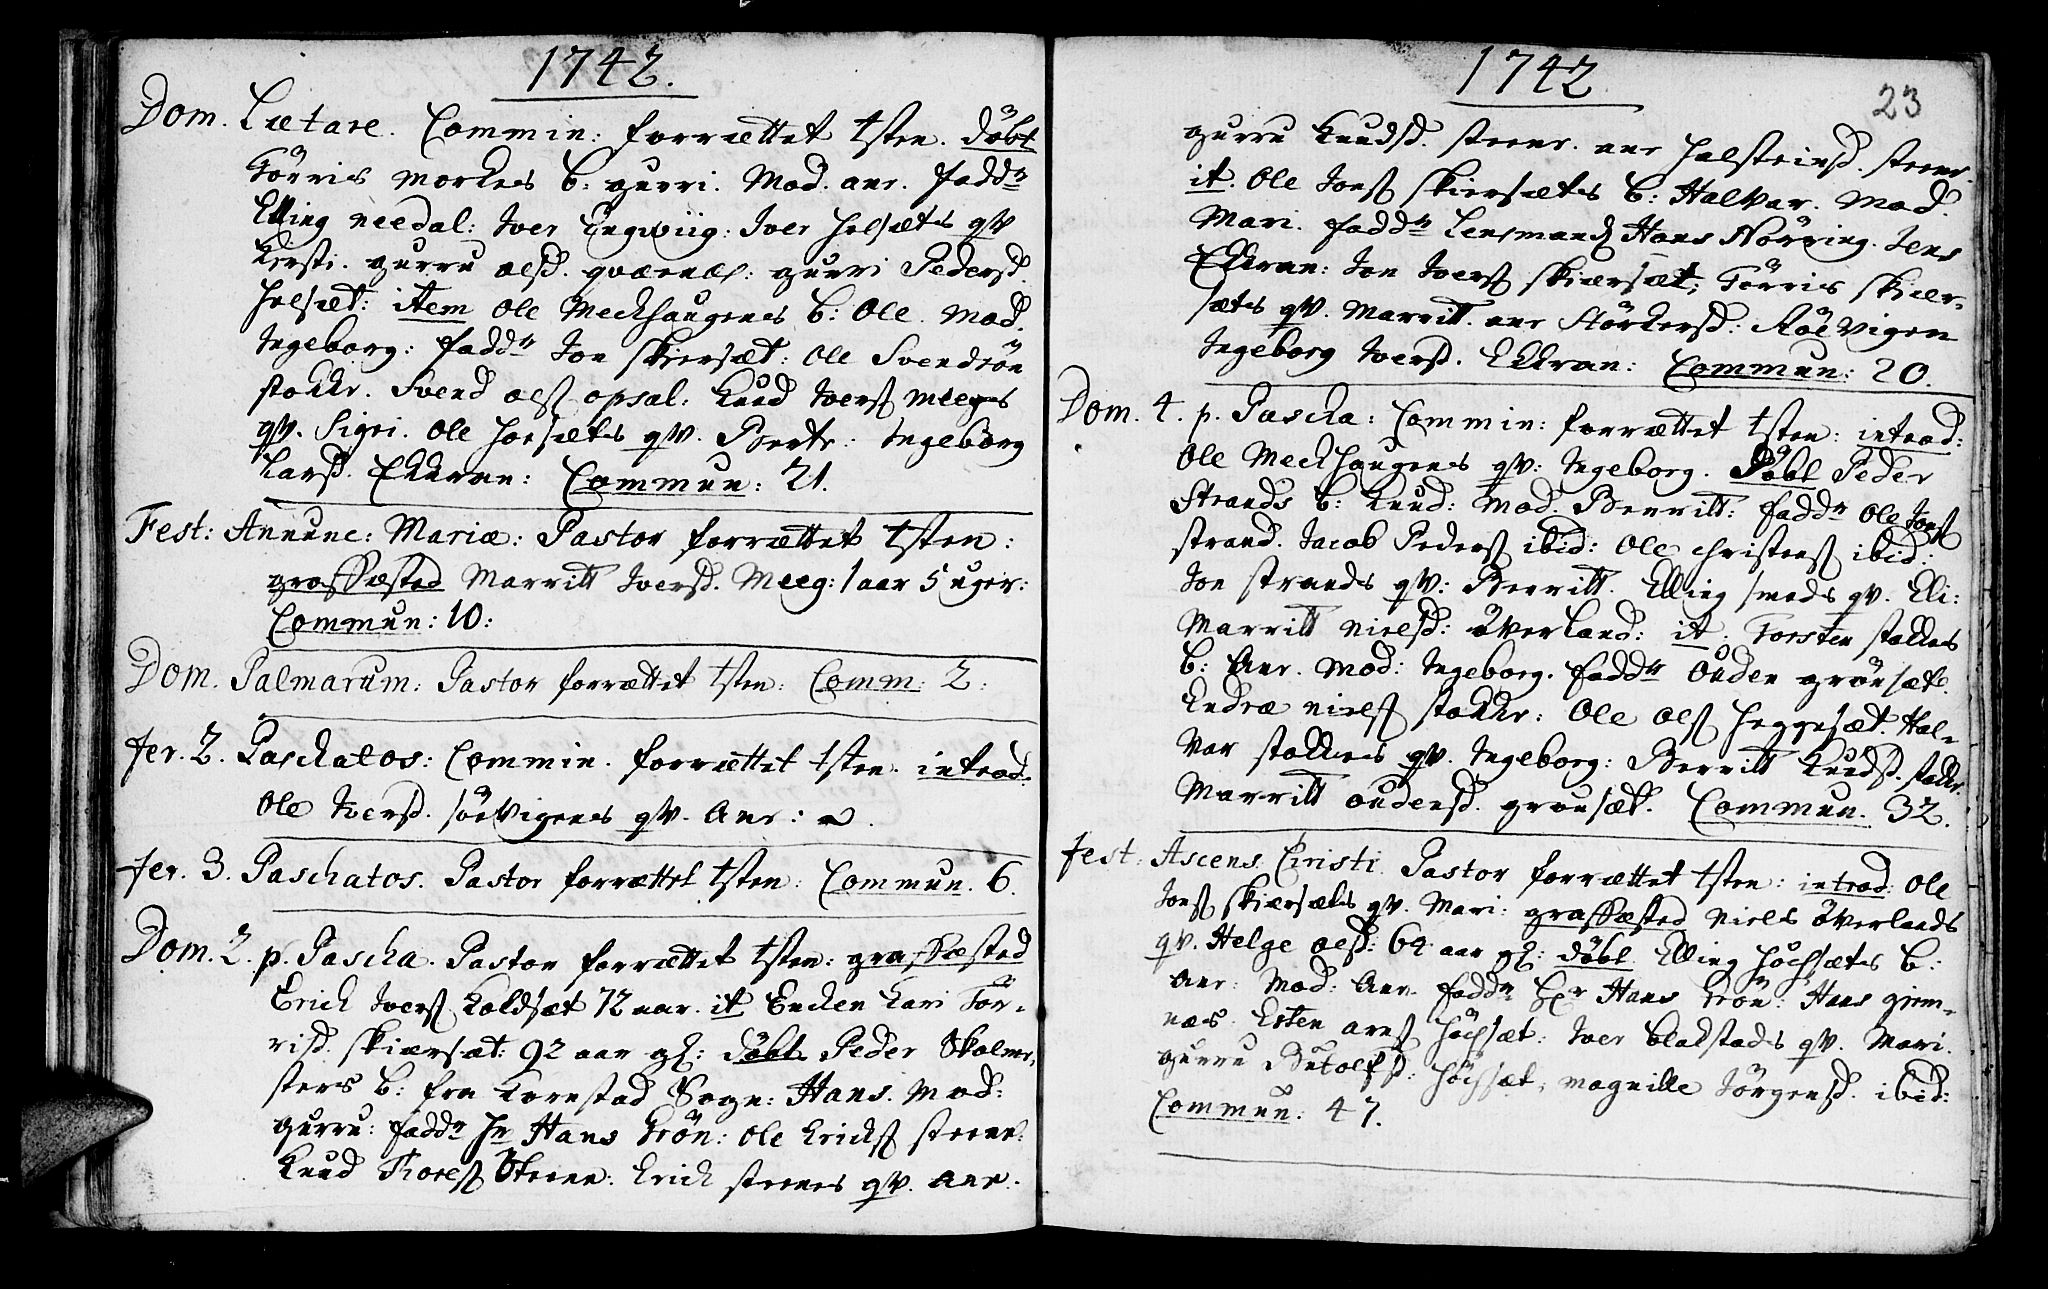 1742.
Dom. Lætare. Commin: forrættet tsten. døbt
Törris Morkes b: gurri. Mod. anr. fadd:r
Elling needal: Iver Engwiig: Iver helsæts qv
Kirsti. gurru olsd. qværnæs: gurri Pedersd.
helsæt: item Ole Meckhaugenes b: Ole. Mod.
Ingeborg: fadd:r Jon skiersæt: Ole Svendsön
stokke. Svend ols opsal: Knud Ivers Meegs
qv. Sigri. Ole horsæts qv. Berte: Ingeborg
Larsd. Ekkran: Commun: 21.
Fest: Annunc: Mariæ: Pastor forrættet tsten:
graffæsted Marritt Iversd. Meeg: 1 aar 5 uger:
Commun: 10:
Dom. Palmarum: Pastor forrættet tsten: Comm: 2:
fer. 2. Paschatos: Commin. forrættet tsten. introd:
Ole Iversd. sörvigenes qv. Anr:
fer. 3. Paschatos. Pastor forrættet tsten: Commun. 6.
Dom. 2. p. Pascha. Pastor forrættet tsten: graffæsted
Erich Ivers Koldsæt 72 aar. it Encken Kari Tör-
risd. skiærsæt: 92 aar gl: döbt Peder Skolme-
sters b: fra Kornstad Sogn: Hans. Mod:
gurru: fadd:r Hr Hans Grön: Ole Ericks steene:
Knud Thores Steene: Erich steenes qv. Anr.
1742
23
gurru Knudsd. steene. anr holsteinsd. steene.
it. Ole Jons skiersæts b: Halvar. Mod.
Mari. fadd:r Lensmand Hans Nörring. Jens
Ekkran: Jon Ivers skiærsæt; Törris skiær-
sæts qv. Marritt. anr Störkersd: Röevigen
Ingeborg Iversd. Ekkran: Commun: 20.
Dom. 4. p. Pascha: Commin: forrættet tsten: introd:
Ole Meckhaugenes qv: Ingeborg. Döbt Peder
Strands b: Knud: Mod. Berritt: fadd:r Ole Jons
strand. Jacob Peders ibid: Ole Christens ibid:
Jon strands qv: Berritt. Elling smeds qv. Eli:
Marritt nielsd: överland: it. Torsten stokkes
b: Anr. Mod: Ingeborg. fadd:r Ouden grönsæt.
Endræ niels stokke: Ole ols heggesæt. Hal-
var stokkes qv. Ingeborg: Berritt Knudsd. stokke.
Marritt oudensd. grönsæt. Commun. 32.
fest: Ascens. Christi. Pastor forrættet tsten: introd: Ole
Jons skiærsæts qv. Mari: graffæsted niels överlands
qv. Helge olsd: 64 aar gl: döbt. Elling höchsæts b:
Anr: Mod: Anr. fadd:r Hr Hans Grön: Hans giem-
næs. Esten arns höchsæt: Iver blakstads qv. Mari.
gurru Butolfsd: höchsæt, magnille Jörgensd. ibid:
Commun: 47.